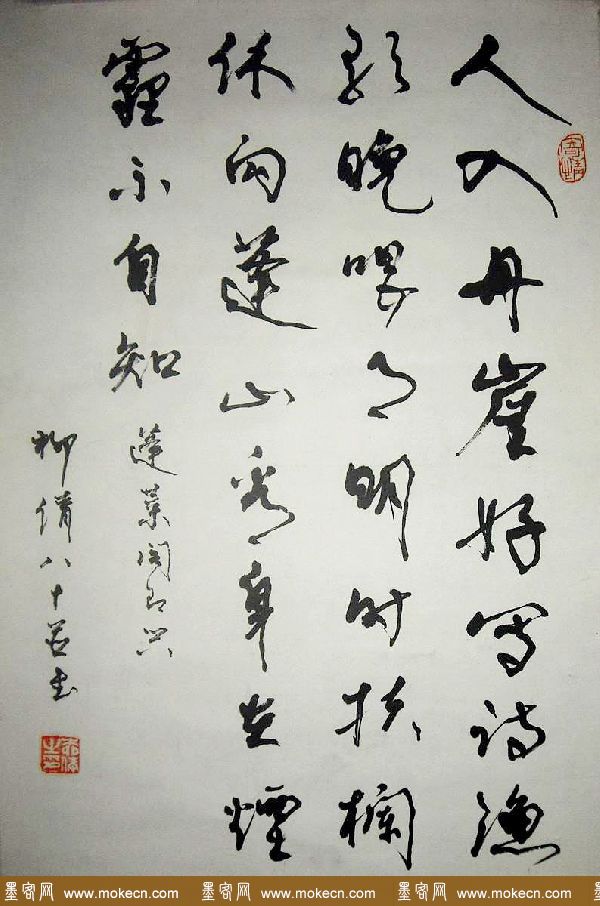 人入丹崖好寫詩漁
歌晚唱月明時扶欄
休向蓬山看身在煙
霞不自知
蓬萊閣即興
柳倩八十書
墨客网 www.mokecn.com 墨客网 www.mokecn.com 墨客网 www.mokecn.com